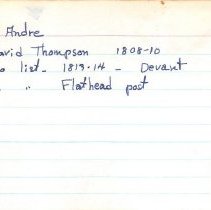 Andre
avid Thompson 1808-10
o list - 1813-14 - Devant
" Flathead post